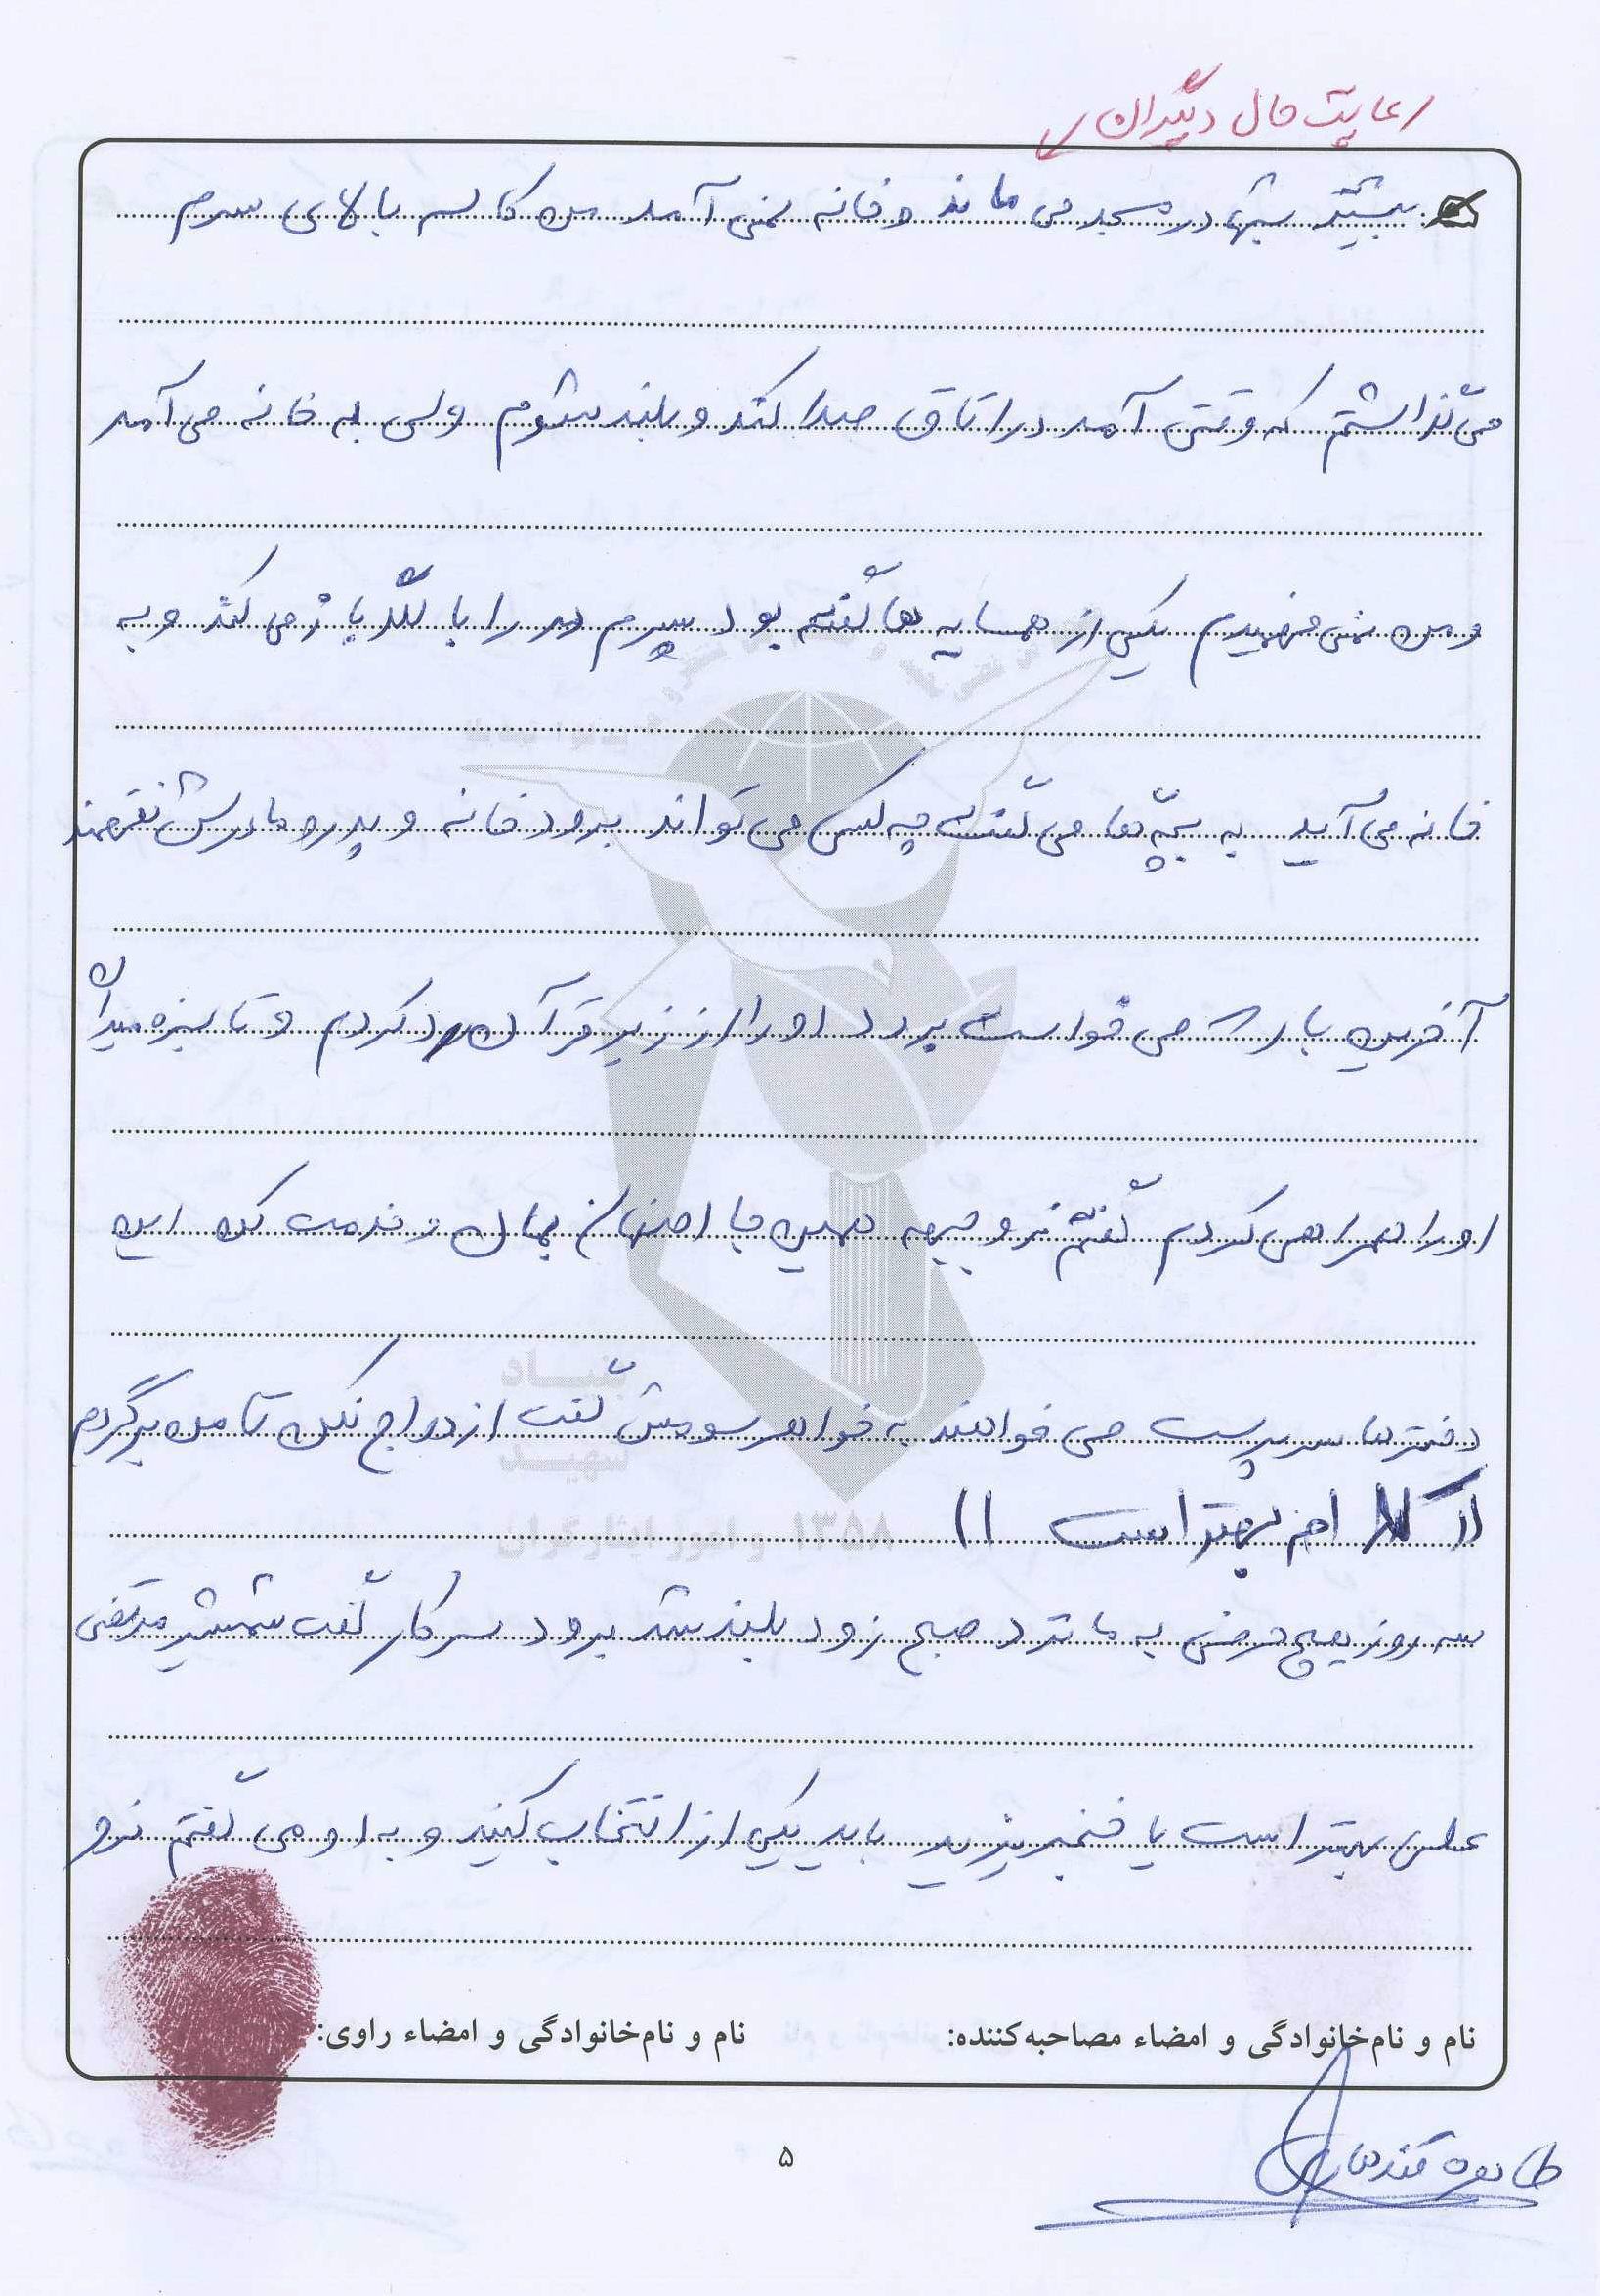 رعایت حال دیگران
بیشتر شبها در مسجد می ماند و خانه نمی آمد من کاسه بالای سرم
می گذاشتم که وقتی آمد در اتاق صدا کند و بلند شوم ولی به خانه می آمد
و من نمی فهمیدم یکی از همسایه ها گفته بود پسرم در را با لگد باز می کند و به
خانه می آید به بچه ها می گفت چه کسی می تواند برود خانه و پدر و مادرش نفهمند
آخرین بار که می خواست برود او را از زیر قرآن رد کردم و تا سبزه میدان
او را همراهی کردم گفتم نرو جبهه همین جا اصفهان بمان و خدمت کن این
دخترها سرپرست می خواهند به خواهر سومش گفت ازدواج نکن تا من برگردم
(( کدام بهتر است ))
سه روز هیچ حرفی به ما نزد صبح زود بلند شد برود سر کار گفت شمشیر مرتضی
علی بهتر است یا خنجر یزید باید یکی از انتخاب کنید و به او می گفتم نرو
نام و نام‌خانوادگی و امضاء مصاحبه‌کننده:
نام و نام‌خانوادگی و امضاء راوی:
طاهره
۵
بنیاد
شهید
و امور ایثارگران
۱۳۵۸